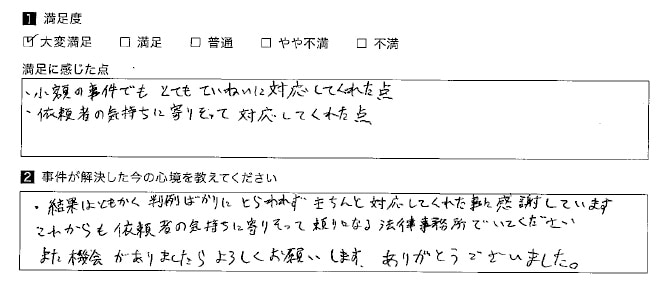 1 満足度
☑大変満足 □ 満足 □ 普通 □ やや不満 □ 不満
満足に感じた点
・小額の事件でも とても ていねいに対応してくれた点
・依頼者の気持ちに寄りそって 対応してくれた点
2 事件が解決した今の心境を教えてください
・結果はともかく 判例ばかりに とらわれず きちんと 対応してくれた事に 感謝しています
これからも 依頼者の気持ちに寄りそって 頼りになる 法律事務所でいてください
また 機会 がありましたら よろしく お願いします。 ありがとうございました。